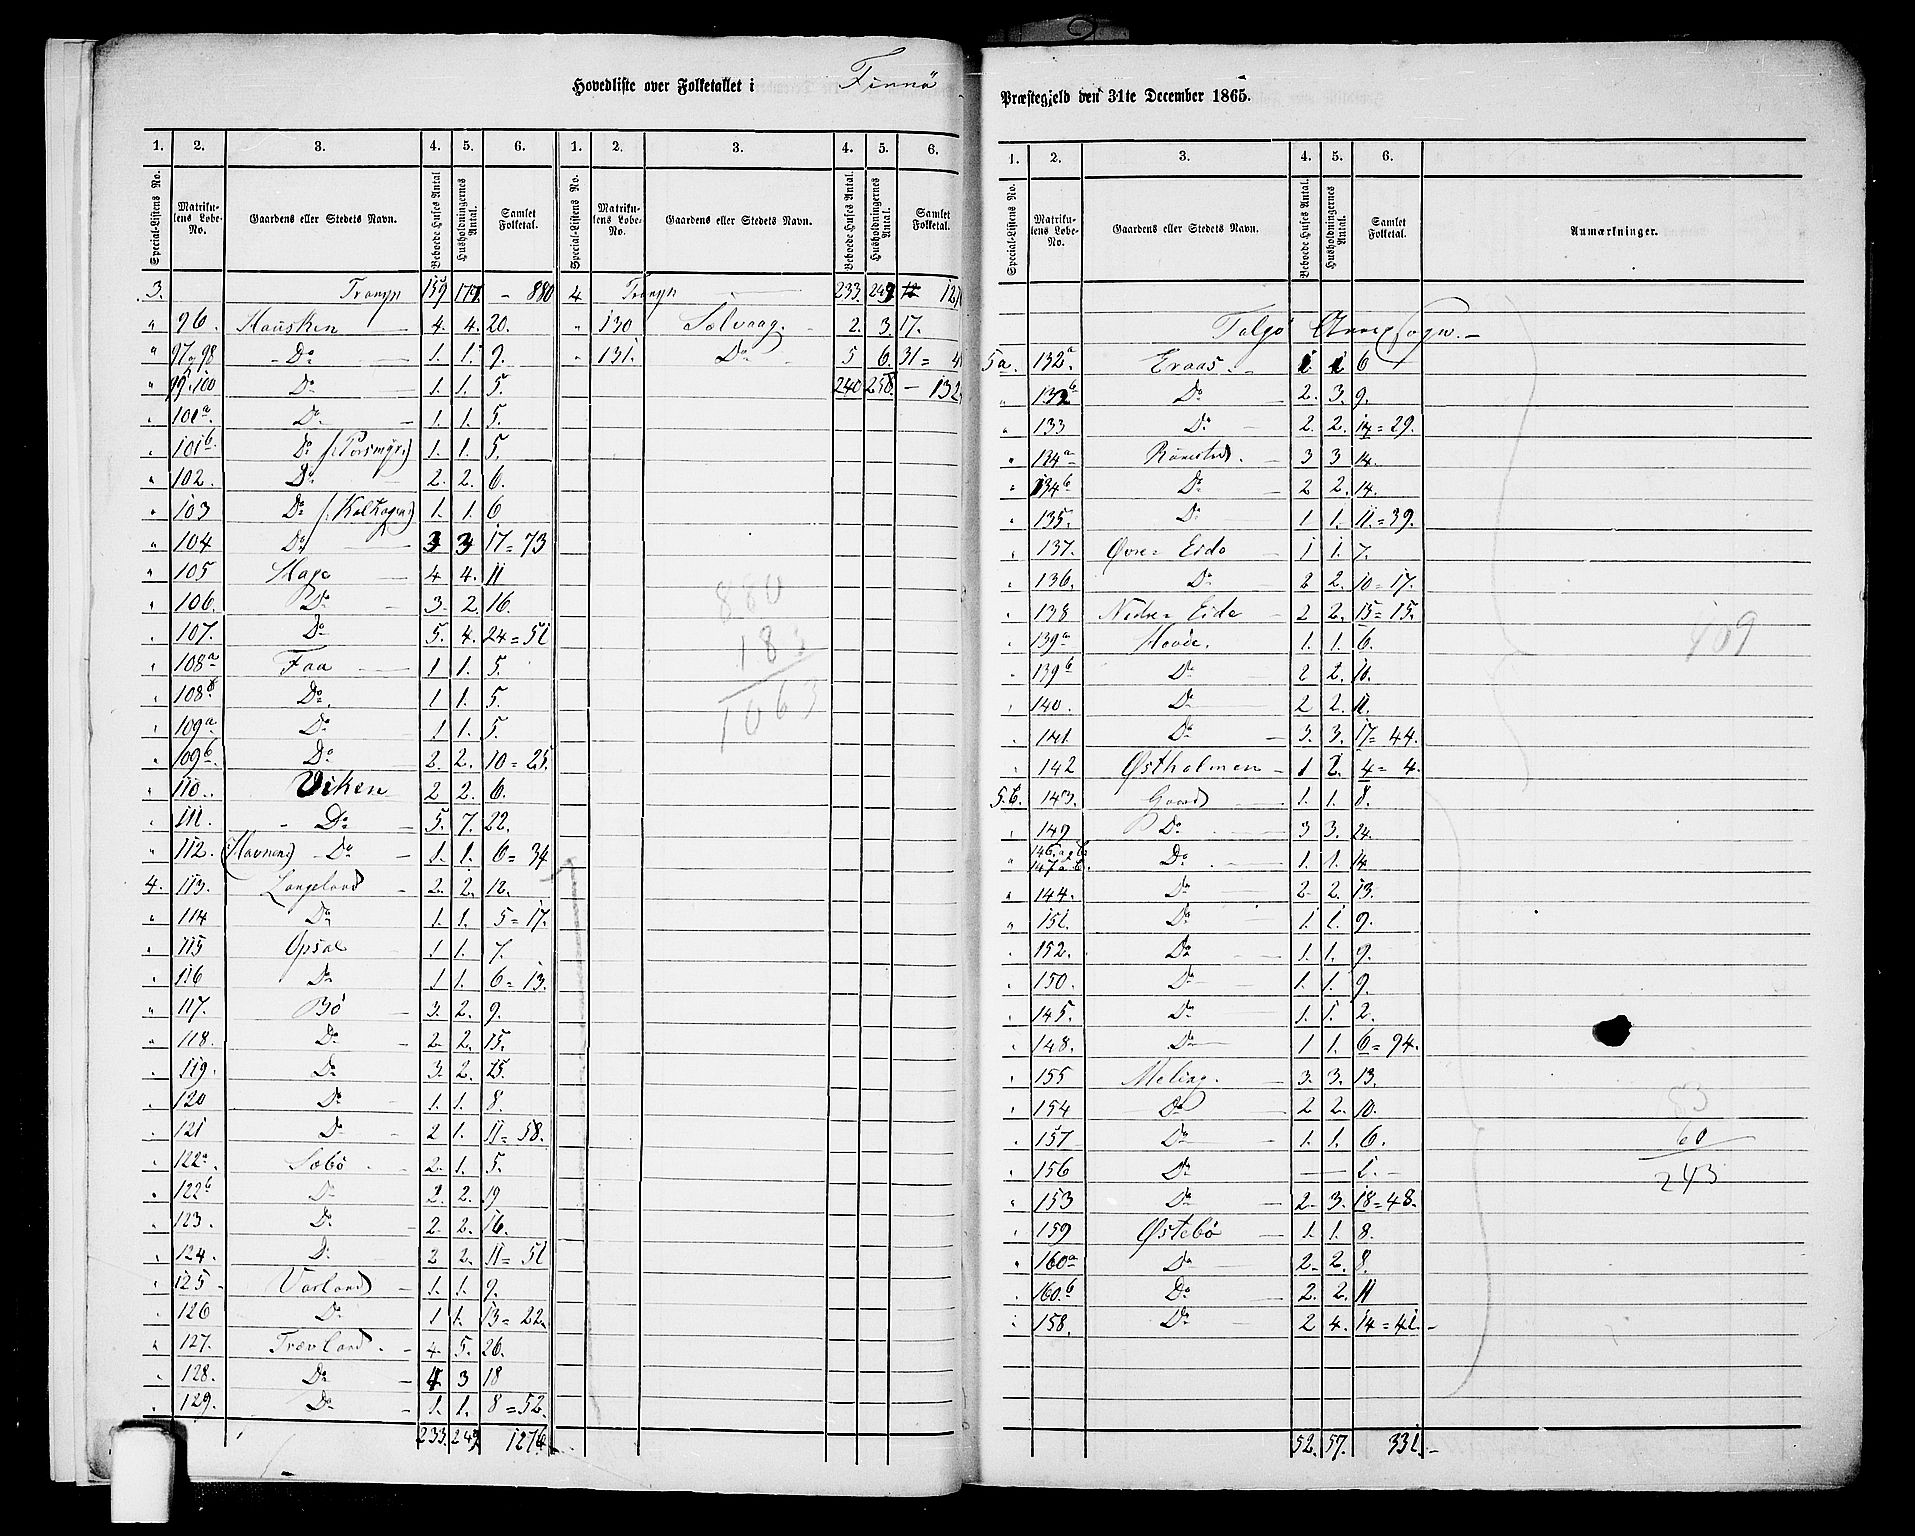 Hovedliste over Folketallet i Finnö
1. 2. 3. 4. 5. 6. 1. 2. 3. 4. 5. 6.
Special-Listens No. Matrikulens Løbe-No. Gaardens eller Stedets Navn. Beboede Huses Antal Husholdningernes Antal. Samlet Folketal. Special-Listens No. Matrikulens Løbe-No. Gaardens eller Stedets Navn. Beboede Huses Antal. Husholdningernes Antal. Samlet Folketal.
3. Transp 159 177 - 880 4 Transp 233. 249
" 96. Hausken 4. 4. 20. " 130 Solvaag. 2. 3. 17.
" 97 og 98 Do 1. 1. 9. " 131. Do 5 6. 31 =
" 99 og 100 Do 1. 1. 5. 240 258. - 132
" 101a. Do 1. 1. 5.
" 101b. Do 1. 1. 5.
" 102. Do 2. 2. 6.
" 103 Do 1. 1. 6
" 104 Do 3 3 17 = 73
" 105 Hage 4 4. 11
" 106. Do 3. 2. 16. 880
" 107. Do 5. 4. 24 = 51 183
" 108a Faa 1 1. 5.
" 108b. Do. 1 1. 5. 1063
" 109a Do 1 1. 5.
" 109b. Do 2. 2. 10 = 25.
" 110. Viken 2 2. 6.
" 111. Do 5. 7. 22.
" 112. (Havnen) Do 1. 1. 6 = 34
4. 113. Langeland 2. 2. 12.
" 114 Do 1. 1. 5 = 17.
" 115 Opsal 1 1. 7.
" 116 Do 1 1. 6 = 13.
" 117. Bö 3. 2. 9.
" 118. Do 2. 2. 15.
" 119. Do 3. 2. 15.
" 120 Do 1. 1. 8.
" 121 Do 2 1. 11 = 58.
" 122a. Sæbö 2. 1. 5.
" 122b Do 2. 2. 19
" 123. Do 2. 2. 16.
" 124. Do 2 2. 11 = 51
" 125 Varland 1. 1. 9.
" 126 Do 1 1. 13 = 22.
" 127. Trævland. 4. 5. 26.
" 128. Do 4 3 18
" 129. Do 1. 1. 8 = 52.
233. 249 1276
Præstegjeld den 31te December 1865.
1. 2. 3. 4. 5. 6.
Special-Listens No. Matrikulens Løbe-No. Gaardens eller Stedets Navn. Beboede Huses Antal. Husholdningernes Antal. Samlet Folketal. Anmærkninger.
Talgö Annex Sogn.
5a. 132a Eraas. 1. 1 6
" 132b Do 2. 3. 9.
" 133 Do 2. 2. 14 = 29.
" 134a Rönestad. 3 3 14.
" 134b Do 2 2. 14.
" 135. Do 1 1. 11 = 39.
" 137. Øvre Eide 1 1. 7.
" 136. Do 2 2. 10 = 17.
" 138 Nedre Eide 2 2. 15 = 15.
" 139a Hovde. 1. 1. 6.
" 139b Do 2 2. 10.
" 140. Do 2 2. 11.
" 141. Do 3. 3. 17 = 44.
" 142 Østholmen 1 1. 4 = 4.
5.b. 143. Gaard 1. 1. 8.
" 149 Do 3 3. 24.
" 146.a og b. 147 a b. Do 1. 1. 14
" 144. Do 2. 2. 13.
" 151. Do 1 1. 9.
" 152. Do 1. 1. 9.
" 150. Do 1. 1. 9.
" 145. Do 1. 1. 2.
" 148. Do 1 1. 6 = 94.
" 155 Meling. 3. 3. 13.
" 154 Do 2 2. 10. 83
" 157 Do 1. 1. 6. 60
" 156 Do — 1. 243
" 153 Do 2. 3. 18 = 48.
" 159 Østebö 1. 1. 8.
" 160a Do 2. 2. 8.
" 160.b Do 2. 2. 11
" 158. Do 2 4. 14 = 41.
52. 57. 331.